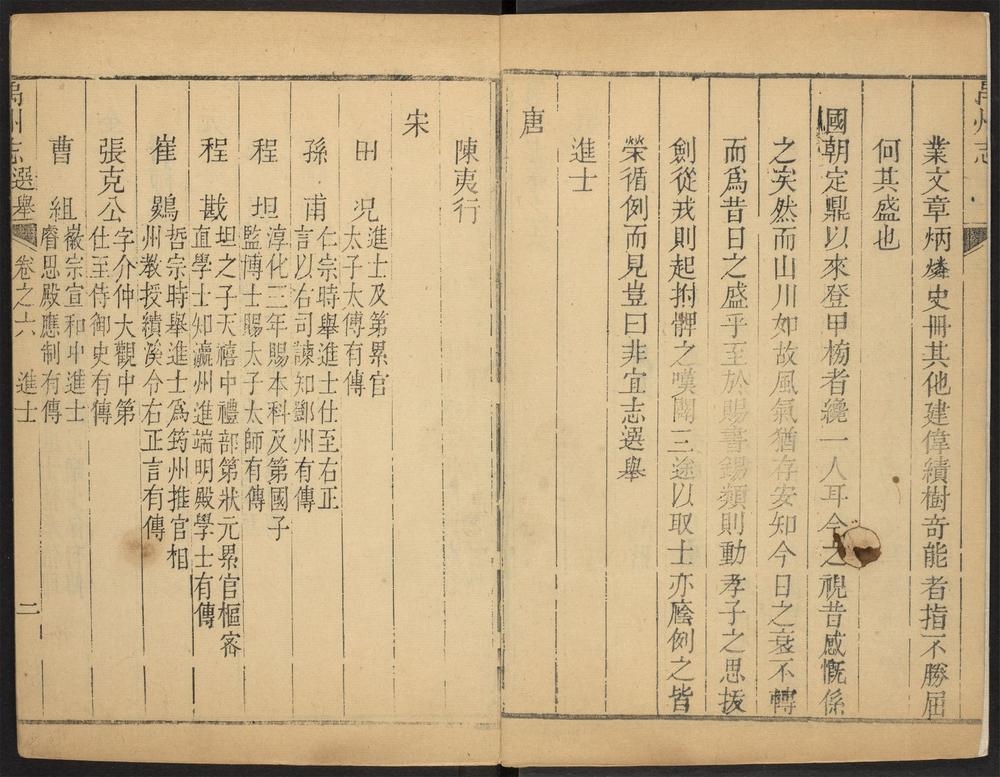 禹州志
業文章炳燐史冊其他建偉績樹奇能者指不勝屈
何其盛也
國朝定鼎以來登甲榜者纔一人耳今之視昔感慨係
之矣然而山川如故風氣猶存安知今日之衰不轉
而爲昔日之盛乎至於賜書錫類則動孝子之思拔
劍從戎則起拊髀之嘆闢三途以取士亦廕例之皆
榮循例而見豈曰非宜志選舉
進士
唐
陳夷行
宋
田况 進士及第累官
太子太傅有傳
孫甫 仁宗時舉進士仕至右正
言以右司諫知鄧州有傳
程坦 淳化三年賜本科及第國子
監博士賜太子太師有傳
程戡 坦之子天禧中禮部第狀元累官樞密
直學士知瀛州進端明殿學士有傳
崔鶠 哲宗時舉進士爲筠州推官相
州教授績溪令右正言有傳
張克公 字介仲大觀中第
仕至侍御史有傳
曹組 徽宗宣和中進士
睿思殿應制有傳
禹州志 選舉 卷之六 進士 二